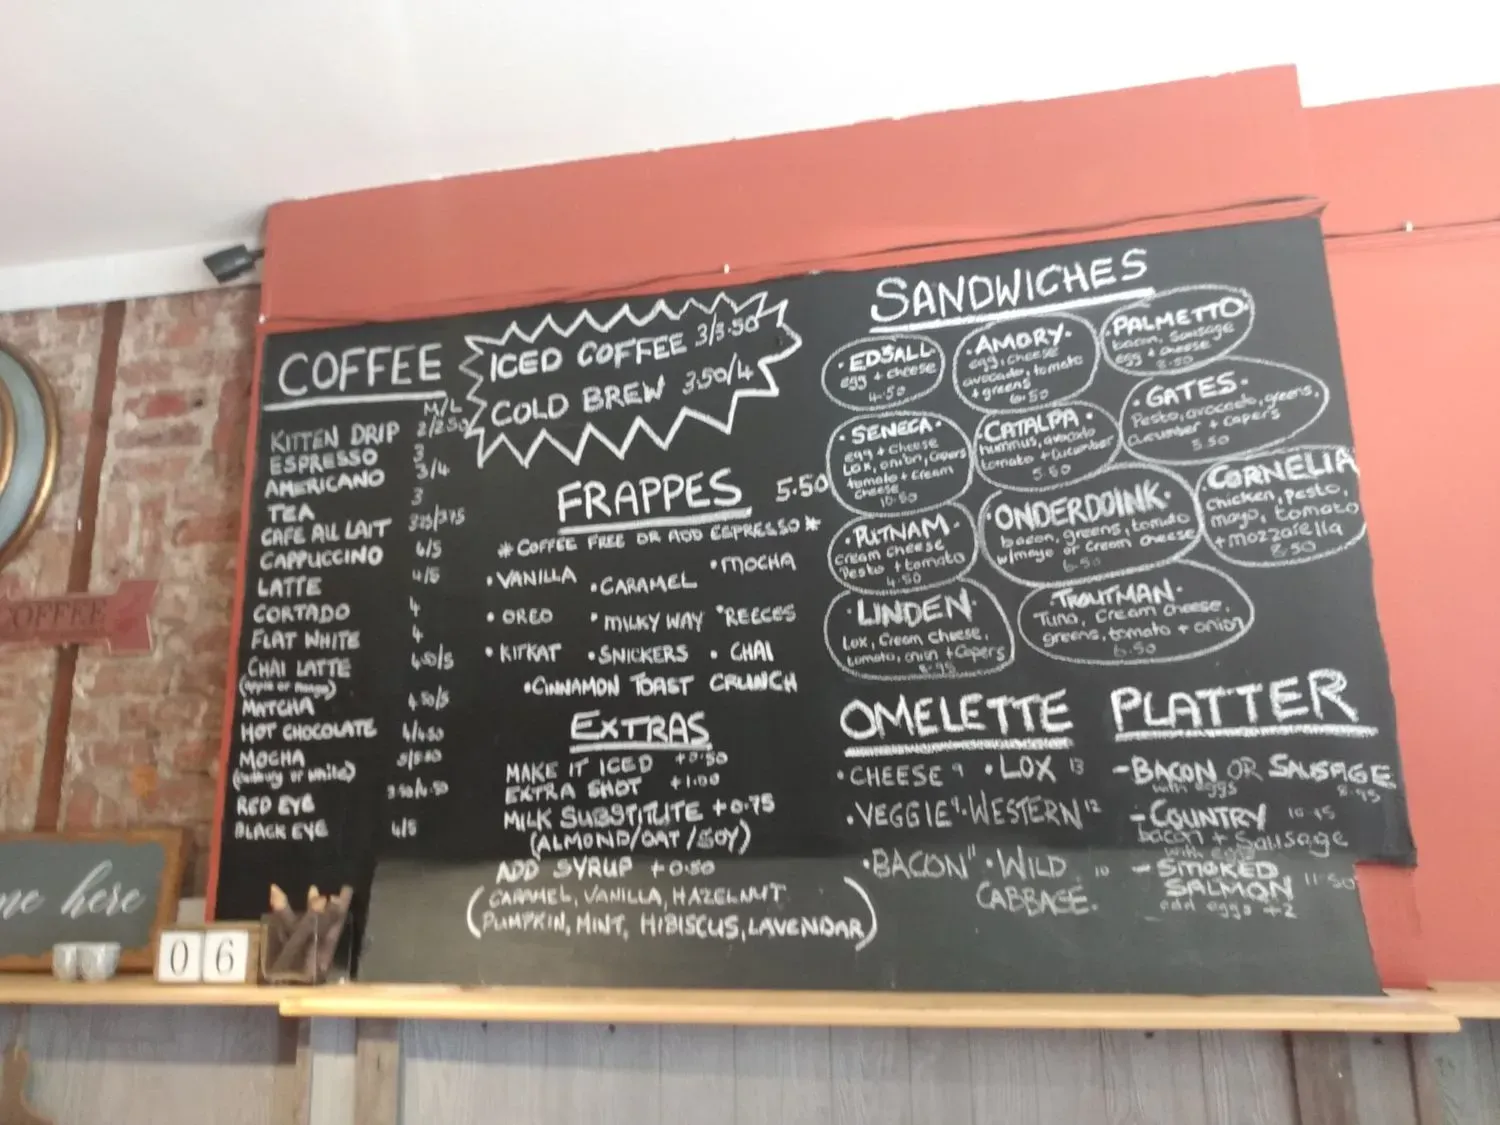 COFFEE
M/L
KITTEN DRIP 2/2.50
ESPRESSO 3
AMERICANO 3/4
TEA 3
CAFE AU LAIT
CAPPUCCINO 4/5
LATTE 4/5
CORTADO 4
FLAT WHITE 4
CHAI LATTE 4.50/5
MATCHA 4.50/5
HOT CHOCOLATE 4/4.50
MOCHA
RED EYE
BLACK EYE 4/5
ICED COFFEE 3/3.50
COLD BREW 3.50/4
FRAPPES 5.50
*COFFEE FREE OR ADD ESPRESSO*
•VANILLA •CARAMEL •MOCHA
•OREO •MILKY WAY •REECES
•KITKAT •SNICKERS •CHAI
•CINNAMON TOAST CRUNCH
EXTRAS
MAKE IT ICED +0.50
EXTRA SHOT +1.00
MILK SUBSTITUTE +0.75
(ALMOND/OAT/SOY)
ADD SYRUP +0.50
(CARAMEL, VANILLA, HAZELNUT
PUMPKIN, MINT, HIBISCUS, LAVENDAR)
SANDWICHES
•EDSALL•
egg + cheese
4.50
•AMORY•
egg, cheese
avocado, tomato
+ greens
6.50
•PALMETTO•
bacon, sausage
egg + cheese
8.50
•SENECA•
egg + cheese
lox, onion, capers
tomato + cream
cheese
10.50
•CATALPA•
hummus, avocado
tomato + cucumber
5.50
•GATES•
Pesto, avocado, greens,
cucumber + capers
5.50
•PUTNAM•
cream cheese
Pesto + tomato
4.50
•ONDERDOINK•
bacon, greens, tomato
w/mayo or cream cheese
6.50
CORNELIA
chicken, pesto,
mayo, tomato
+ mozzarella
8.50
•LINDEN•
Lox, cream cheese,
tomato, onion + capers
8.95
•TROUTMAN•
Tuna, cream cheese,
greens, tomato + onion
6.50
OMELETTE
•CHEESE 9 •LOX 13
•VEGGIE 9 •WESTERN 12
•BACON 11 •WILD 10
CABBAGE.
PLATTER
-BACON OR SAUSAGE
with eggs 8.95
-COUNTRY
bacon + sausage
with eggs
-SMOKED
SALMON 11.50
add eggs +2
COFFEE
me here
06